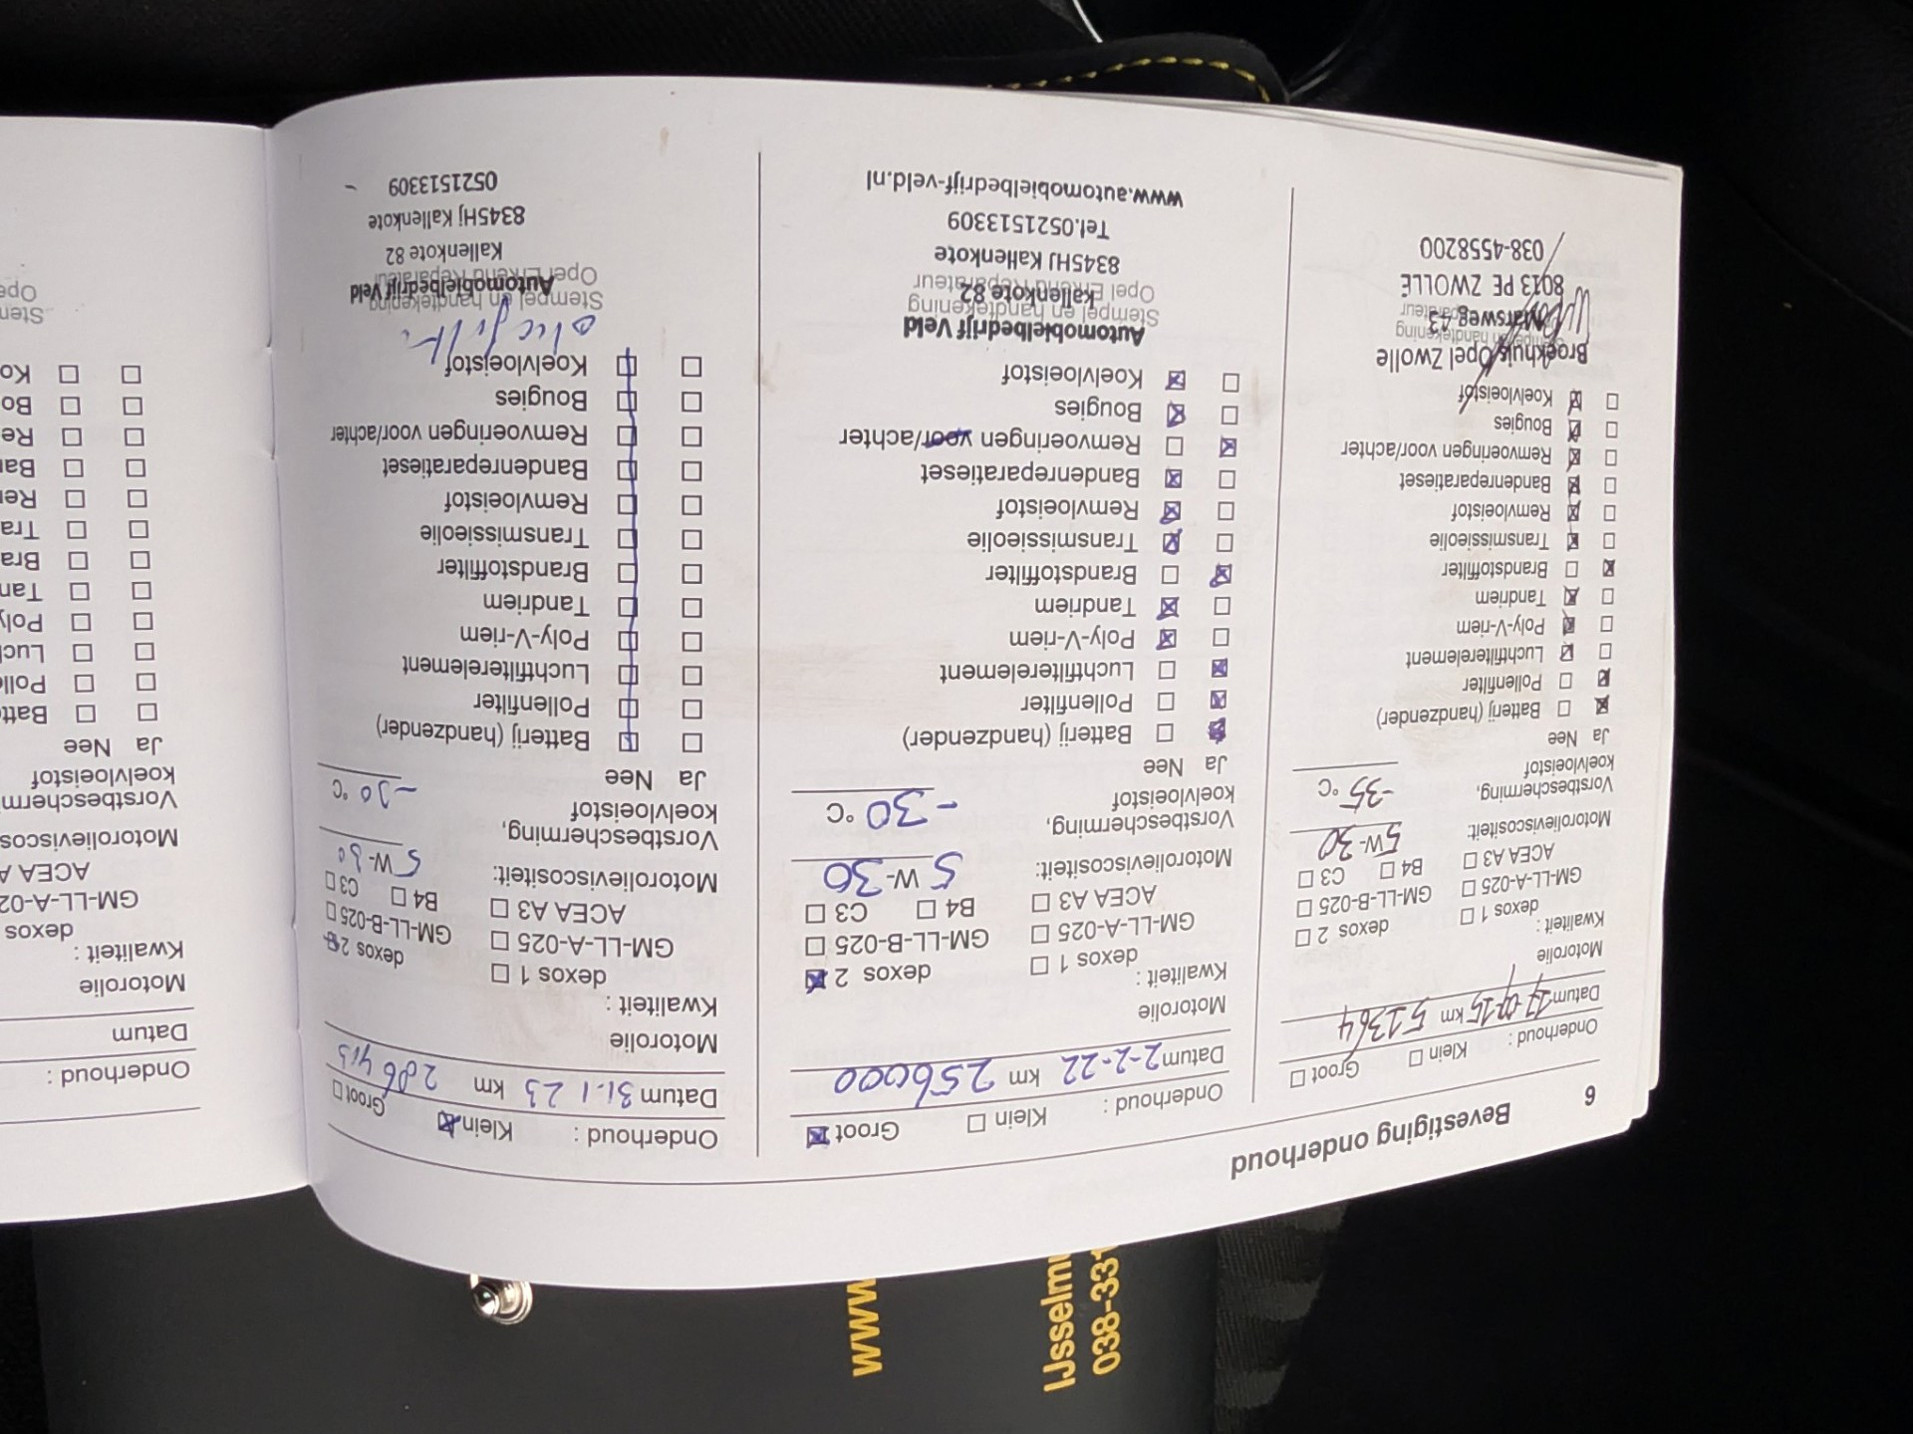 6 Bevestiging onderhoud
Onderhoud : Klein ☐ Groot ☐
Datum km 51364
Motorolie
Kwaliteit :
dexos 1 ☐ dexos 2 ☐
GM-LL-A-025 ☐ GM-LL-B-025 ☐
ACEA A3 ☐ B4 ☐ C3 ☐
Motorolieviscositeit: 5W-30
Vorstbescherming,
koelvloeistof -35 °C
Ja Nee
☒ ☐ Batterij (handzender)
☒ ☐ Pollenfilter
☐ ☒ Luchtfilterelement
☐ ☒ Poly-V-riem
☐ ☒ Tandriem
☒ ☐ Brandstoffilter
☐ ☒ Transmissieolie
☐ ☒ Remvloeistof
☐ ☒ Bandenreparatieset
☐ ☒ Remvoeringen voor/achter
☐ ☒ Bougies
☐ ☒ Koelvloeistof
Broekhuis Opel Zwolle
Stempel en handtekening
Marsweg 43
8013 PE ZWOLLE
038-4558200
Onderhoud : Klein ☐ Groot ☒
Datum 2-2-22 km 256000
Motorolie
Kwaliteit :
dexos 1 ☐ dexos 2 ☒
GM-LL-A-025 ☐ GM-LL-B-025 ☐
ACEA A3 ☐ B4 ☐ C3 ☐
Motorolieviscositeit: 5 W-30
Vorstbescherming,
koelvloeistof -30 °C
Ja Nee
☒ ☐ Batterij (handzender)
☒ ☐ Pollenfilter
☒ ☐ Luchtfilterelement
☐ ☒ Poly-V-riem
☐ ☒ Tandriem
☒ ☐ Brandstoffilter
☐ ☒ Transmissieolie
☐ ☒ Remvloeistof
☐ ☒ Bandenreparatieset
☒ ☐ Remvoeringen voor/achter
☐ ☒ Bougies
☐ ☒ Koelvloeistof
Automobielbedrijf Veld
Stempel en handtekening
Kallenkote 82
Opel Erkend Reparateur
8345HJ Kallenkote
Tel.0521513309
www.automobielbedrijf-veld.nl
Onderhoud : Klein ☒ Groot ☐
Datum 31-1 23 km 286413
Motorolie
Kwaliteit :
dexos 1 ☐ dexos 2 ☒
GM-LL-A-025 ☐ GM-LL-B-025 ☐
ACEA A3 ☐ B4 ☐ C3 ☐
Motorolieviscositeit: 5 W-30
Vorstbescherming,
koelvloeistof -30 °C
Ja Nee
☐ ☐ Batterij (handzender)
☐ ☐ Pollenfilter
☐ ☐ Luchtfilterelement
☐ ☐ Poly-V-riem
☐ ☐ Tandriem
☐ ☐ Brandstoffilter
☐ ☐ Transmissieolie
☐ ☐ Remvloeistof
☐ ☐ Bandenreparatieset
☐ ☐ Remvoeringen voor/achter
☐ ☐ Bougies
☐ ☐ Koelvloeistof
Stempel en handtekening
Automobielbedrijf Veld
Opel Erkend Reparateur
Kallenkote 82
8345Hj Kallenkote
0521513309
Onderhoud :
Datum
Motorolie
Kwaliteit :
dexos
GM-LL-A-02
ACEA A
Motorolieviscos
Vorstbescherm
koelvloeistof
Ja Nee
☐ ☐ Batte
☐ ☐ Polle
☐ ☐ Luch
☐ ☐ Poly
☐ ☐ Tan
☐ ☐ Bra
☐ ☐ Tra
☐ ☐ Rer
☐ ☐ Bar
☐ ☐ Re
☐ ☐ Bo
☐ ☐ Ko
Sten
Ope
www
IJsselmu
038-331